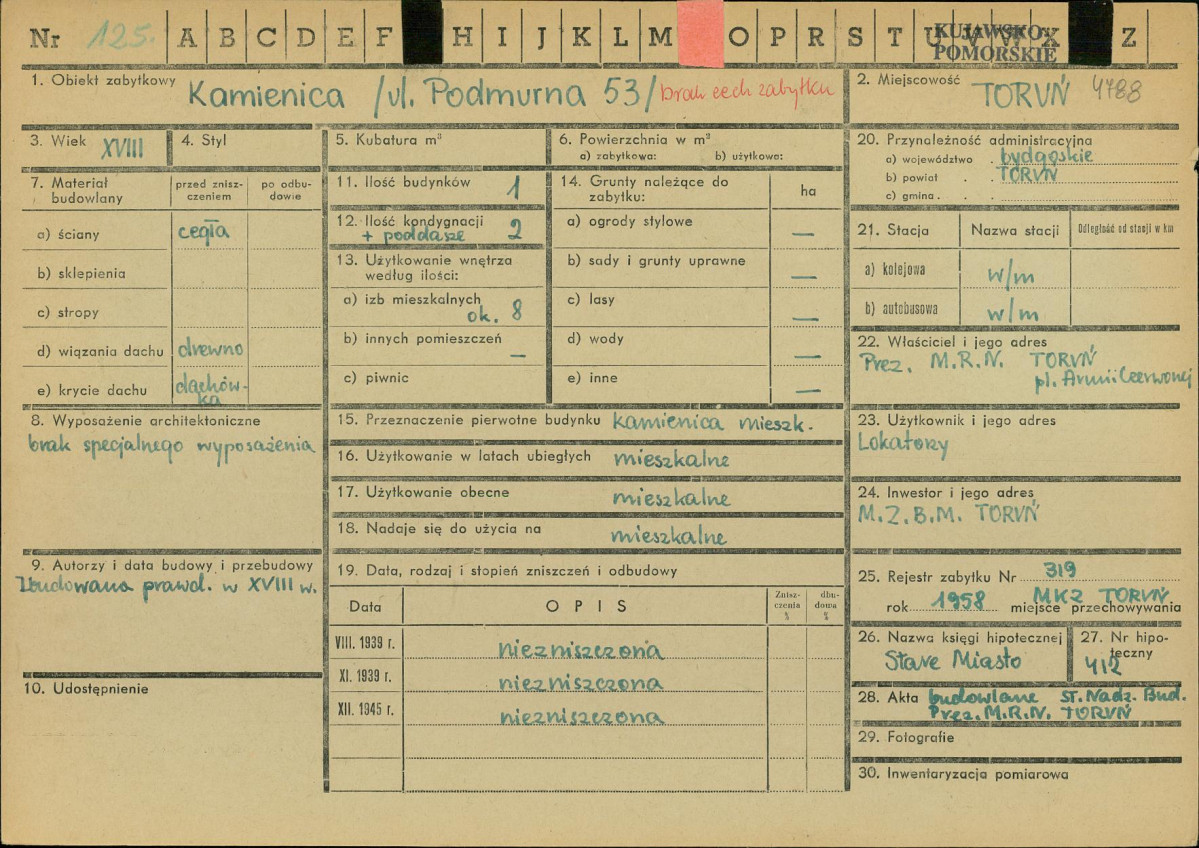 Nr 125. A B C D E F H I J K L M O P R S T U V W X Z
KUJAWSKO-
POMORSKIE
1. Obiekt zabytkowy Kamienica /ul. Podmurna 53/ brak cech zabytku
2. Miejscowość TORUŃ 4788
3. Wiek XVIII
4. Styl
5. Kubatura m³
6. Powierzchnia w m²
a) zabytkowa: b) użytkowe:
7. Materiał budowlany
przed znisz-
czeniem
po odbu-
dowie
a) ściany cegła
b) sklepienia
c) stropy
d) wiązania dachu drewno
e) krycie dachu dachów-
ka
8. Wyposażenie architektoniczne
brak specjalnego wyposażenia
9. Autorzy i data budowy i przebudowy
Zbudowana prawd. w XVIII w.
10. Udostępnienie
11. Ilość budynków 1
12. Ilość kondygnacji 2
+ poddasze
13. Użytkowanie wnętrza
według ilości:
a) izb mieszkalnych
ok. 8
b) innych pomieszczeń —
c) piwnic
14. Grunty należące do
zabytku:
ha
a) ogrody stylowe —
b) sady i grunty uprawne —
c) lasy —
d) wody —
e) inne —
15. Przeznaczenie pierwotne budynku kamienica mieszk.
16. Użytkowanie w latach ubiegłych mieszkalne
17. Użytkowanie obecne mieszkalne
18. Nadaje się do użycia na mieszkalne
19. Data, rodzaj i stopień zniszczeń i odbudowy
Data
OPIS
Znisz-
czenia
%
dbu-
dowa
%
VIII. 1939 r. niezniszczona
XI. 1939 r. niezniszczona
XII. 1945 r. niezniszczona
20. Przynależność administracyjna
a) województwo . bydgoskie
b) powiat . . TORUŃ
c) gmina . . .
21. Stacja
Nazwa stacji
Odległość od stacji w km
a) kolejowa w/m
b) autobusowa w/m
22. Właściciel i jego adres
Prez. M.R.N. TORUŃ
pl. Armii Czerwonej
23. Użytkownik i jego adres
Lokatorzy
24. Inwestor i jego adres
M.Z.B.M. TORUŃ
25. Rejestr zabytku Nr 319
rok 1958 miejsce przechowywania MKZ TORUŃ
26. Nazwa księgi hipotecznej
Stare Miasto
27. Nr hipo-
teczny
412
28. Akta budowlane St. Nadz. Bud.
Prez. M.R.N. TORUŃ
29. Fotografie
30. Inwentaryzacja pomiarowa